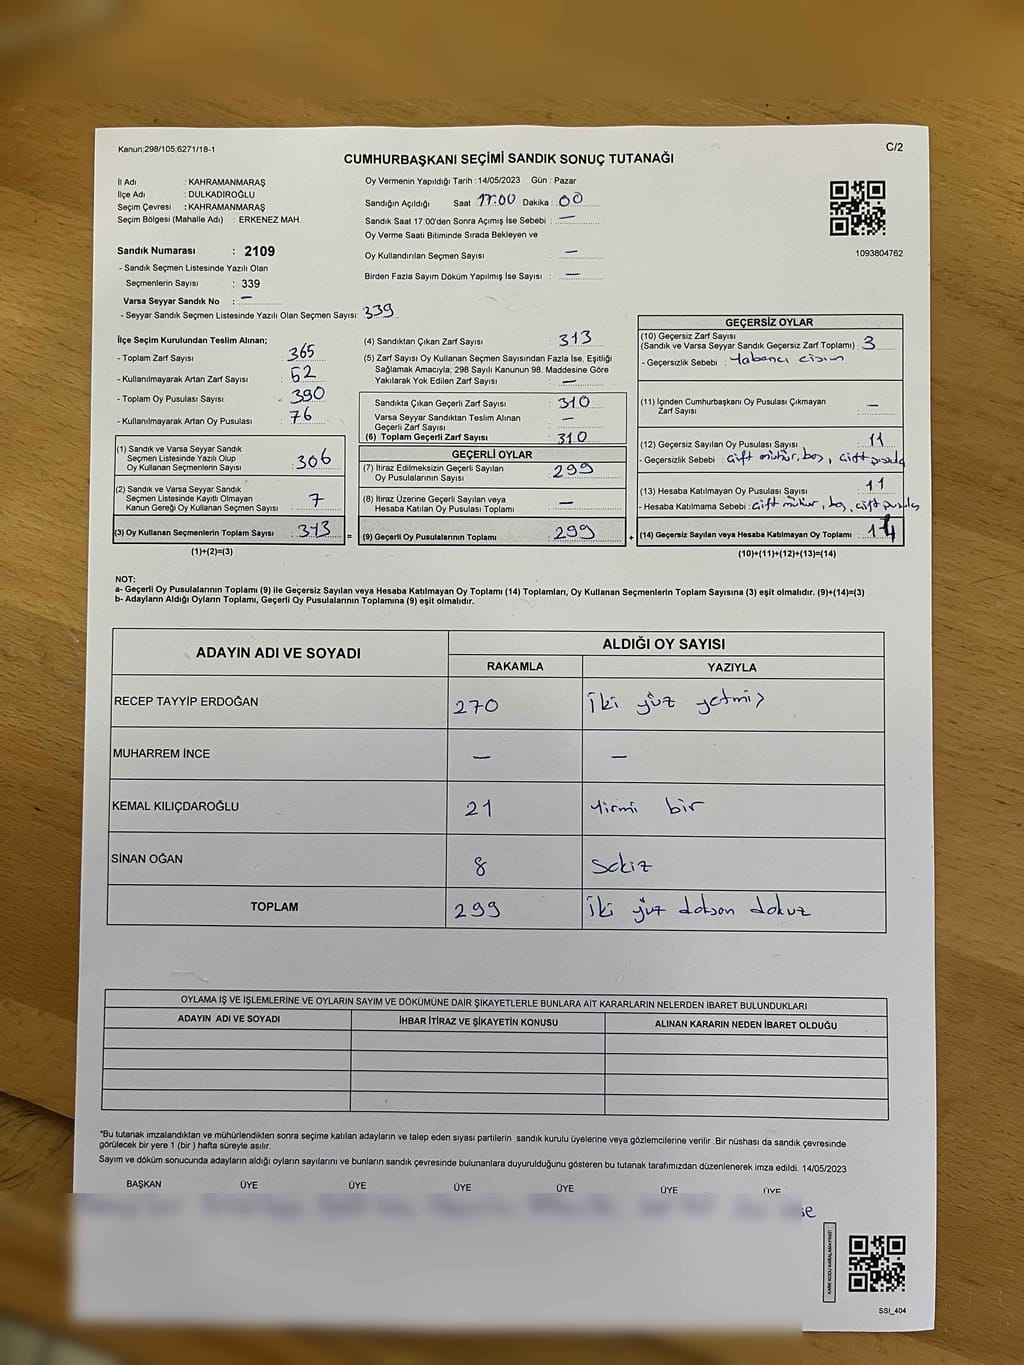 Kanun;298/105,6271/18-1
C/2
CUMHURBAŞKANI SEÇİMİ SANDIK SONUÇ TUTANAĞI
İl Adı : KAHRAMANMARAŞ
İlçe Adı : DULKADİROĞLU
Seçim Çevresi : KAHRAMANMARAŞ
Seçim Bölgesi (Mahalle Adı) : ERKENEZ MAH.
Sandık Numarası : 2109
- Sandık Seçmen Listesinde Yazılı Olan
Seçmenlerin Sayısı : 339
Varsa Seyyar Sandık No : —
- Seyyar Sandık Seçmen Listesinde Yazılı Olan Seçmen Sayısı: 339
Oy Vermenin Yapıldığı Tarih : 14/05/2023 Gün : Pazar
Sandığın Açıldığı Saat 17:00 Dakika : 00
Sandık Saat 17:00'den Sonra Açımış İse Sebebi : —
Oy Verme Saati Bitiminde Sırada Bekleyen ve
Oy Kullandırılan Seçmen Sayısı : —
Birden Fazla Sayım Döküm Yapılmış İse Sayısı : —
1093804762
İlçe Seçim Kurulundan Teslim Alınan;
- Toplam Zarf Sayısı : 365
- Kullanılmayarak Artan Zarf Sayısı : 52
- Toplam Oy Pusulası Sayısı : 390
- Kullanılmayarak Artan Oy Pusulası : 76
(1) Sandık ve Varsa Seyyar Sandık
Seçmen Listesinde Yazılı Olup
Oy Kullanan Seçmenlerin Sayısı : 306
(2) Sandık ve Varsa Seyyar Sandık
Seçmen Listesinde Kayıtlı Olmayan
Kanun Gereği Oy Kullanan Seçmen Sayısı : 7
(3) Oy Kullanan Seçmenlerin Toplam Sayısı : 313
(1)+(2)=(3)
=
(4) Sandıktan Çıkan Zarf Sayısı : 313
(5) Zarf Sayısı Oy Kullanan Seçmen Sayısından Fazla İse, Eşitliği
Sağlamak Amacıyla; 298 Sayılı Kanunun 98. Maddesine Göre
Yakılarak Yok Edilen Zarf Sayısı : —
Sandıkta Çıkan Geçerli Zarf Sayısı : 310
Varsa Seyyar Sandıktan Teslim Alınan
Geçerli Zarf Sayısı : —
(6) Toplam Geçerli Zarf Sayısı : 310
GEÇERLİ OYLAR
(7) İtiraz Edilmeksizin Geçerli Sayılan
Oy Pusulalarının Sayısı : 299
(8) İtiraz Üzerine Geçerli Sayılan veya
Hesaba Katılan Oy Pusulası Toplamı : —
(9) Geçerli Oy Pusulalarının Toplamı : 299
+
GEÇERSİZ OYLAR
(10) Geçersiz Zarf Sayısı
(Sandık ve Varsa Seyyar Sandık Geçersiz Zarf Toplamı) : 3
- Geçersizlik Sebebi : Yabancı cisim
(11) İçinden Cumhurbaşkanı Oy Pusulası Çıkmayan
Zarf Sayısı : —
(12) Geçersiz Sayılan Oy Pusulası Sayısı : 11
- Geçersizlik Sebebi : çift mühür, boş, çift pusula
(13) Hesaba Katılmayan Oy Pusulası Sayısı : 11
- Hesaba Katılmama Sebebi : çift mühür, boş, çift pusula
(14) Geçersiz Sayılan veya Hesaba Katılmayan Oy Toplamı : 14
(10)+(11)+(12)+(13)=(14)
NOT:
a- Geçerli Oy Pusulalarının Toplamı (9) ile Geçersiz Sayılan veya Hesaba Katılmayan Oy Toplamı (14) Toplamları, Oy Kullanan Seçmenlerin Toplam Sayısına (3) eşit olmalıdır. (9)+(14)=(3)
b- Adayların Aldığı Oyların Toplamı, Geçerli Oy Pusulalarının Toplamına (9) eşit olmalıdır.
ADAYIN ADI VE SOYADI
ALDIĞI OY SAYISI
RAKAMLA YAZIYLA
RECEP TAYYİP ERDOĞAN 270 İki yüz yetmiş
MUHARREM İNCE — —
KEMAL KILIÇDAROĞLU 21 Yirmi bir
SİNAN OĞAN 8 Sekiz
TOPLAM 299 İki yüz doksan dokuz
OYLAMA İŞ VE İŞLEMLERİNE VE OYLARIN SAYIM VE DÖKÜMÜNE DAİR ŞİKAYETLERLE BUNLARA AİT KARARLARIN NELERDEN İBARET BULUNDUKLARI
ADAYIN ADI VE SOYADI İHBAR İTİRAZ VE ŞİKAYETİN KONUSU ALINAN KARARIN NEDEN İBARET OLDUĞU
*Bu tutanak imzalandıktan ve mühürlendikten sonra seçime katılan adayların ve talep eden siyasi partilerin sandık kurulu üyelerine veya gözlemcilerine verilir .Bir nüshası da sandık çevresinde
görülecek bir yere 1 (bir ) hafta süreyle asılır.
Sayım ve döküm sonucunda adayların aldığı oyların sayılarını ve bunların sandık çevresinde bulunanlara duyurulduğunu gösteren bu tutanak tarafımızdan düzenlenerek imza edildi. 14/05/2023
BAŞKAN ÜYE ÜYE ÜYE ÜYE ÜYE ÜYE
KARE KODU KARALAMAYINIZ!
SSI_404